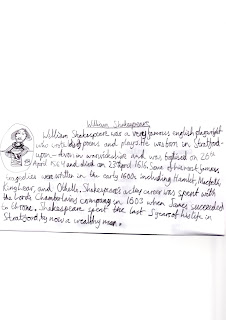 William Shakespeare
William Shakespeare was a very famous english playwright
who wrote poems and plays. He was born in Stratford-
upon-Avon in warwickshire and was baptised on 26th
April 1564 and died on 23rd April 1616. Some of his most famous
tragedies were written in the early 1600s including Hamlet, Macbeth,
King Lear, and Othello. Shakespeare's acting career was spent with
the Lords Chamberlain's company in 1603 when James succeeded
to throne. Shakespeare spent the last 5 years of his life in
Stratford, by now a wealthy man.